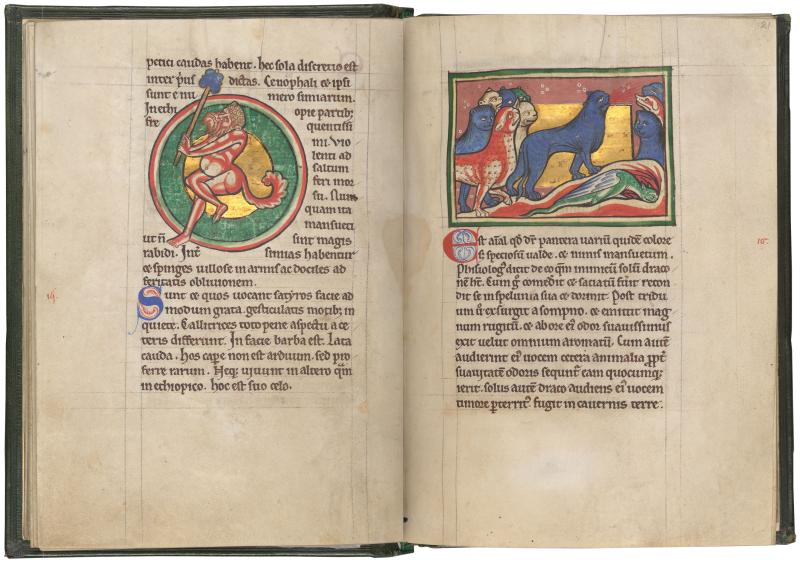 petici caudas habent. hec sola discretis est
inter p'us dictas. Cenophali ⁊ ipsi
sunt e nu mero simiarum.
In ethi opie partib;
fre quentissi
mi. Vio
lenti ad
saltum
feri mor
su. Num
quam ita
mansueti
ut n̄ sint magis
rabidi. Int̄ simias habentur
⁊ spinges uillose in armis ac dociles ad
feritatis obliuionem.
16.
Sunt ⁊ quos uocant satyros facie ad
modum grata. gesticulatis motib; in
quiete. Callitrices toto pene aspectu a ce
teris differunt. In facie barba est. Lata
cauda. Hos cape non est arduum. sed pro
ferre rarum. Neq; uiuunt in altero q̄m
in ethiopico. hoc est suo celo.
21
Est aīal qd̄ dr̄ pantera uariū quidē colore
s; speciosū ualde. ⁊ nimis mansuetum.
Phisiolog' dicit de eo qm̄ inimicū solū draco
nē ht̄. Cum g° comedit ⁊ satiatū fūit recon
dit se in spelunca sua ⁊ dormit. Post tridu
um exsurgit a sompno. ⁊ emittit mag
num rugitū. ⁊ ab ore ei' odor suauissimus
exit uelut omnium aromatū. Cum autē
audierint ei' uocem cetera animalia ꝓpt̄
suauitatē odoris sequnt' eam quocumq;
ierit. solus autē draco audiens ei' uocem
timore ꝑterrit' fugit in cauernis terre.